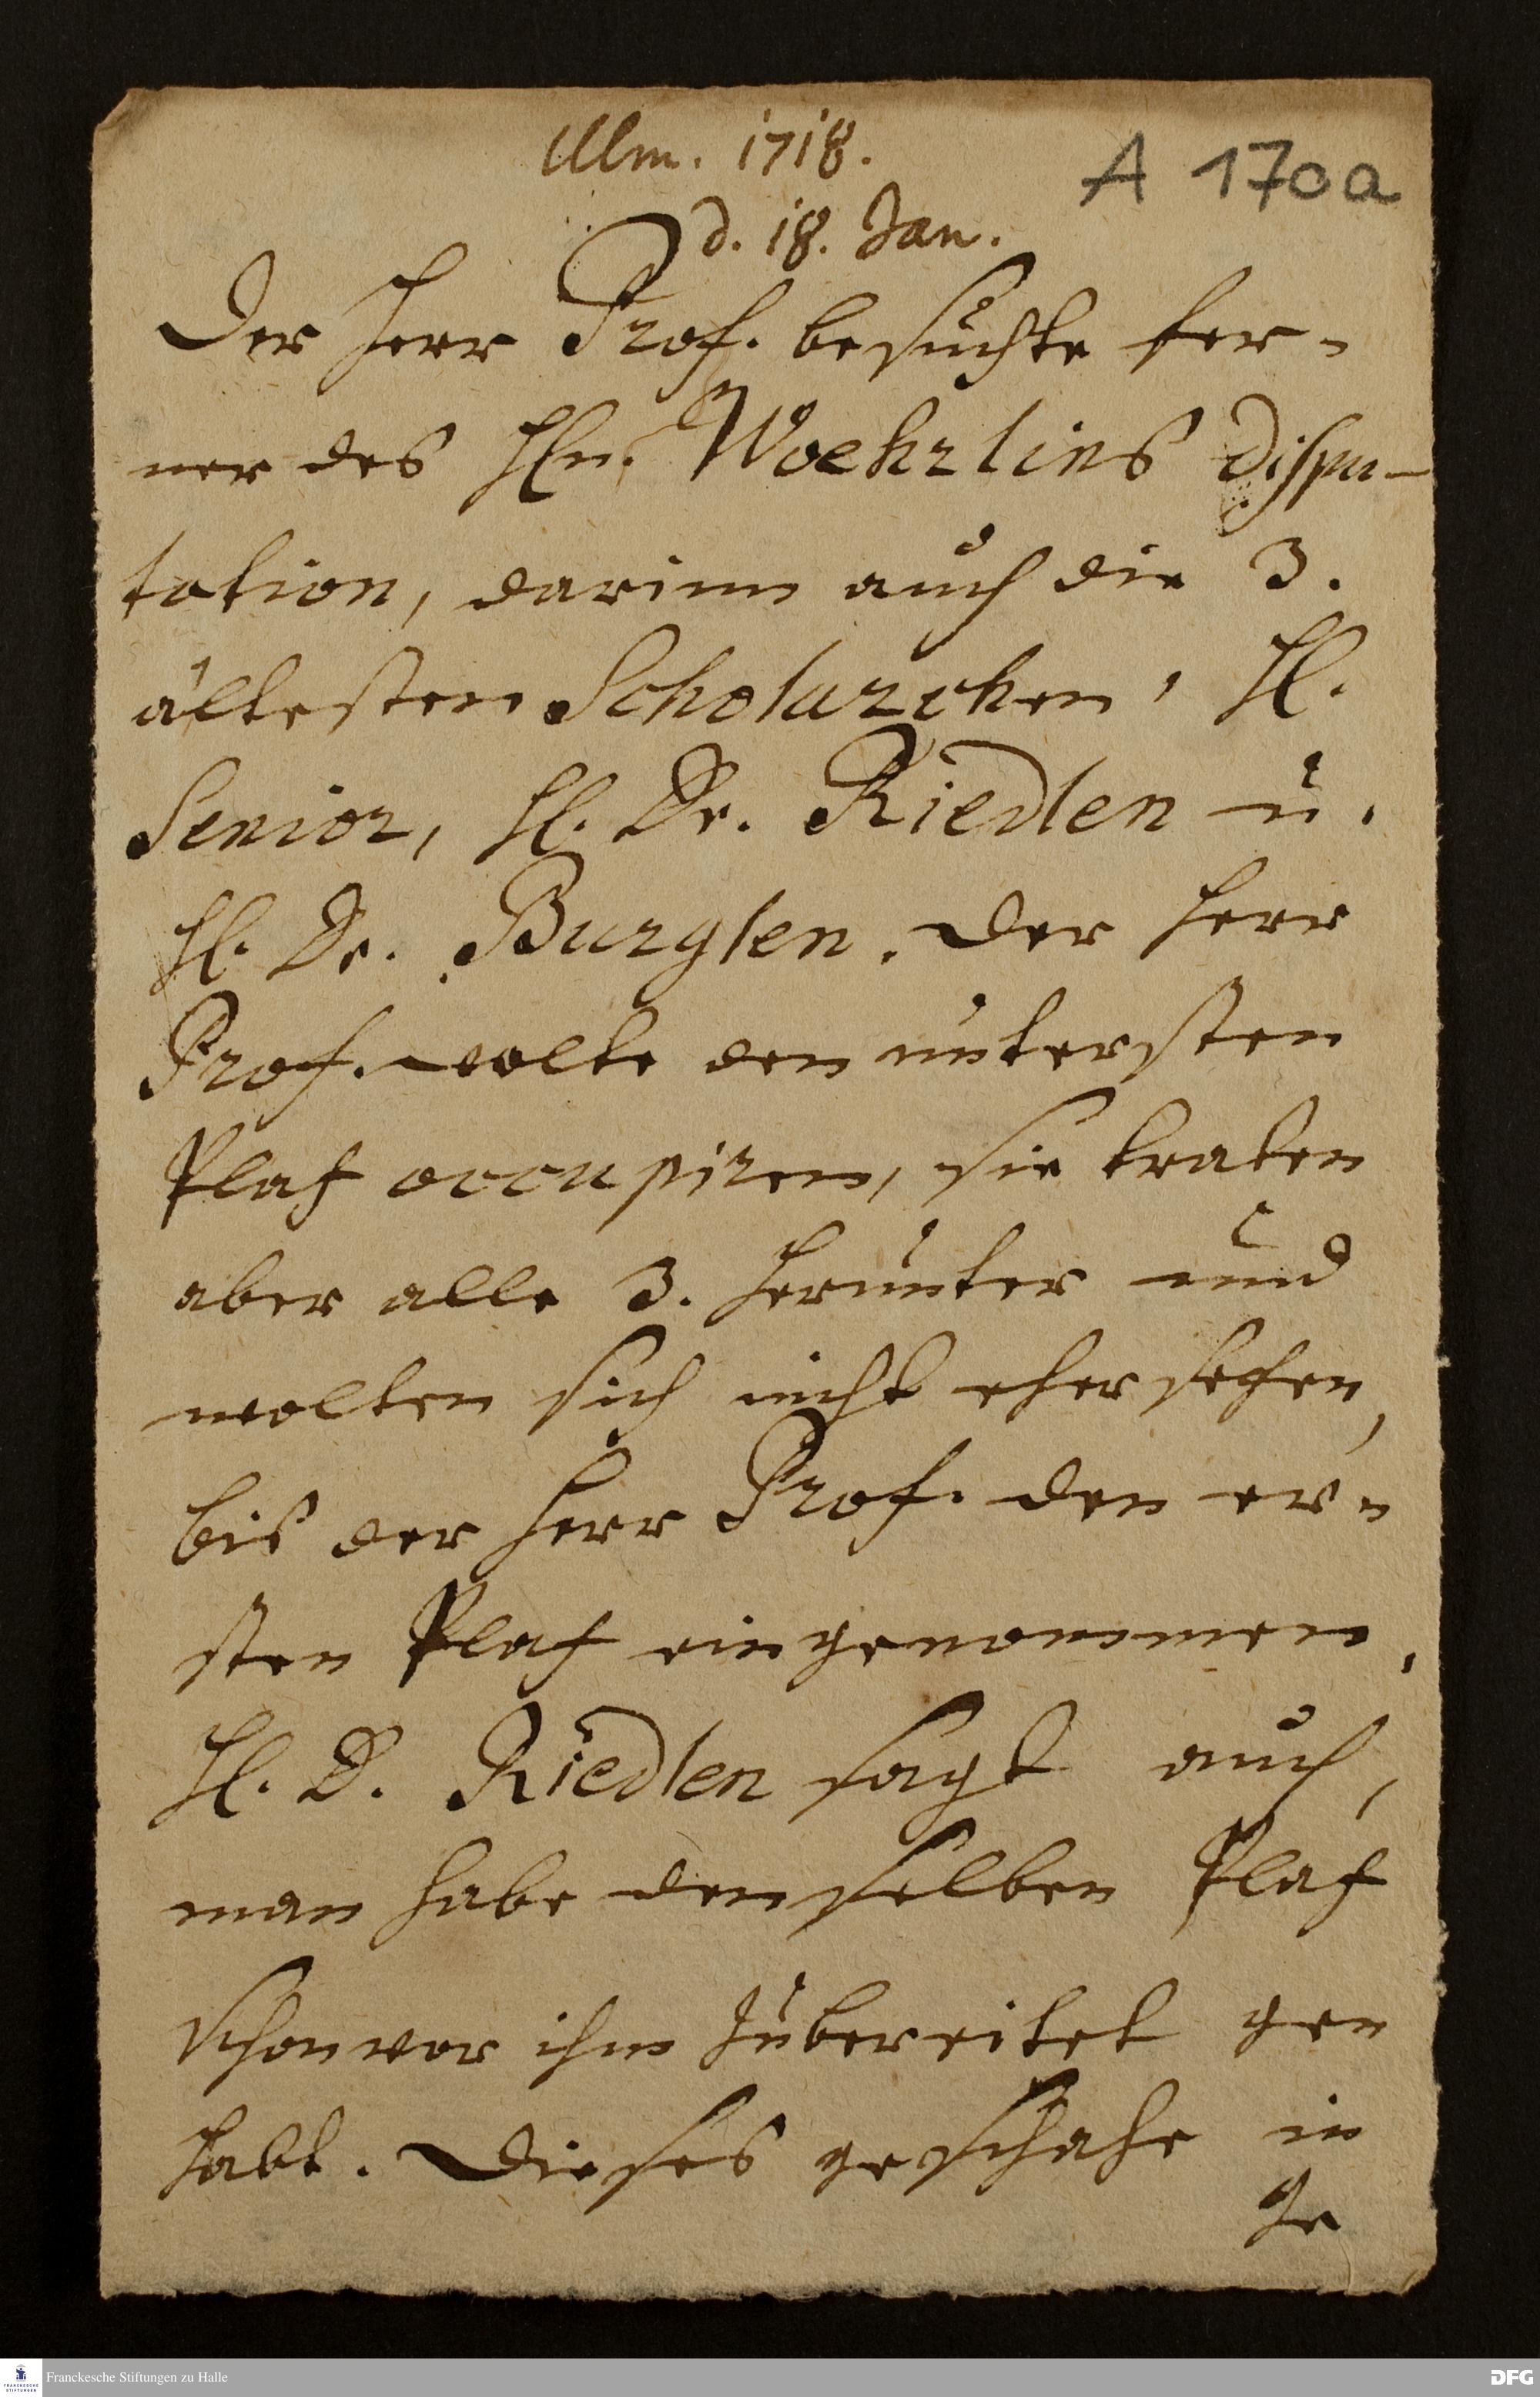 Ulm. 1718.
A 170a
d. 18. Jan.
Der Herr Prof. besuchte fer-
ner des Hln. Woehrlins Dispu-
tation, darinn auch die 3.
ältesten Scholarchen, Hl.
Senior, Hl. Dr. Riedlen u.
Hl. Dr. Burglen. Der Herr
Prof. wolte den untersten
Platz occupiren, sie traten
aber alle 3. herunter und
wolten sich nicht eher setzen,
bis der Herr Prof. den er-
sten Platz eingenommen.
Hl. D. Riedlen sagt auch,
man habe denselben Platz
schon vor ihm zubereitet ge-
habt. Dieses geschahe in
Ge
Franckesche Stiftungen zu Halle
FRANCKESCHE
STIFTUNGEN
DFG